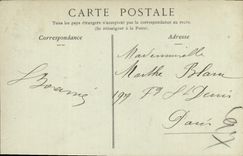 CARTE POSTALE
Tous les pays étrangers n'acceptent pas la correspondance au recto.
(Se renseigner à la Poste).
Correspondance
Adresse
Mademoiselle
Marthe Blanc
199 Fg St Denis
Paris